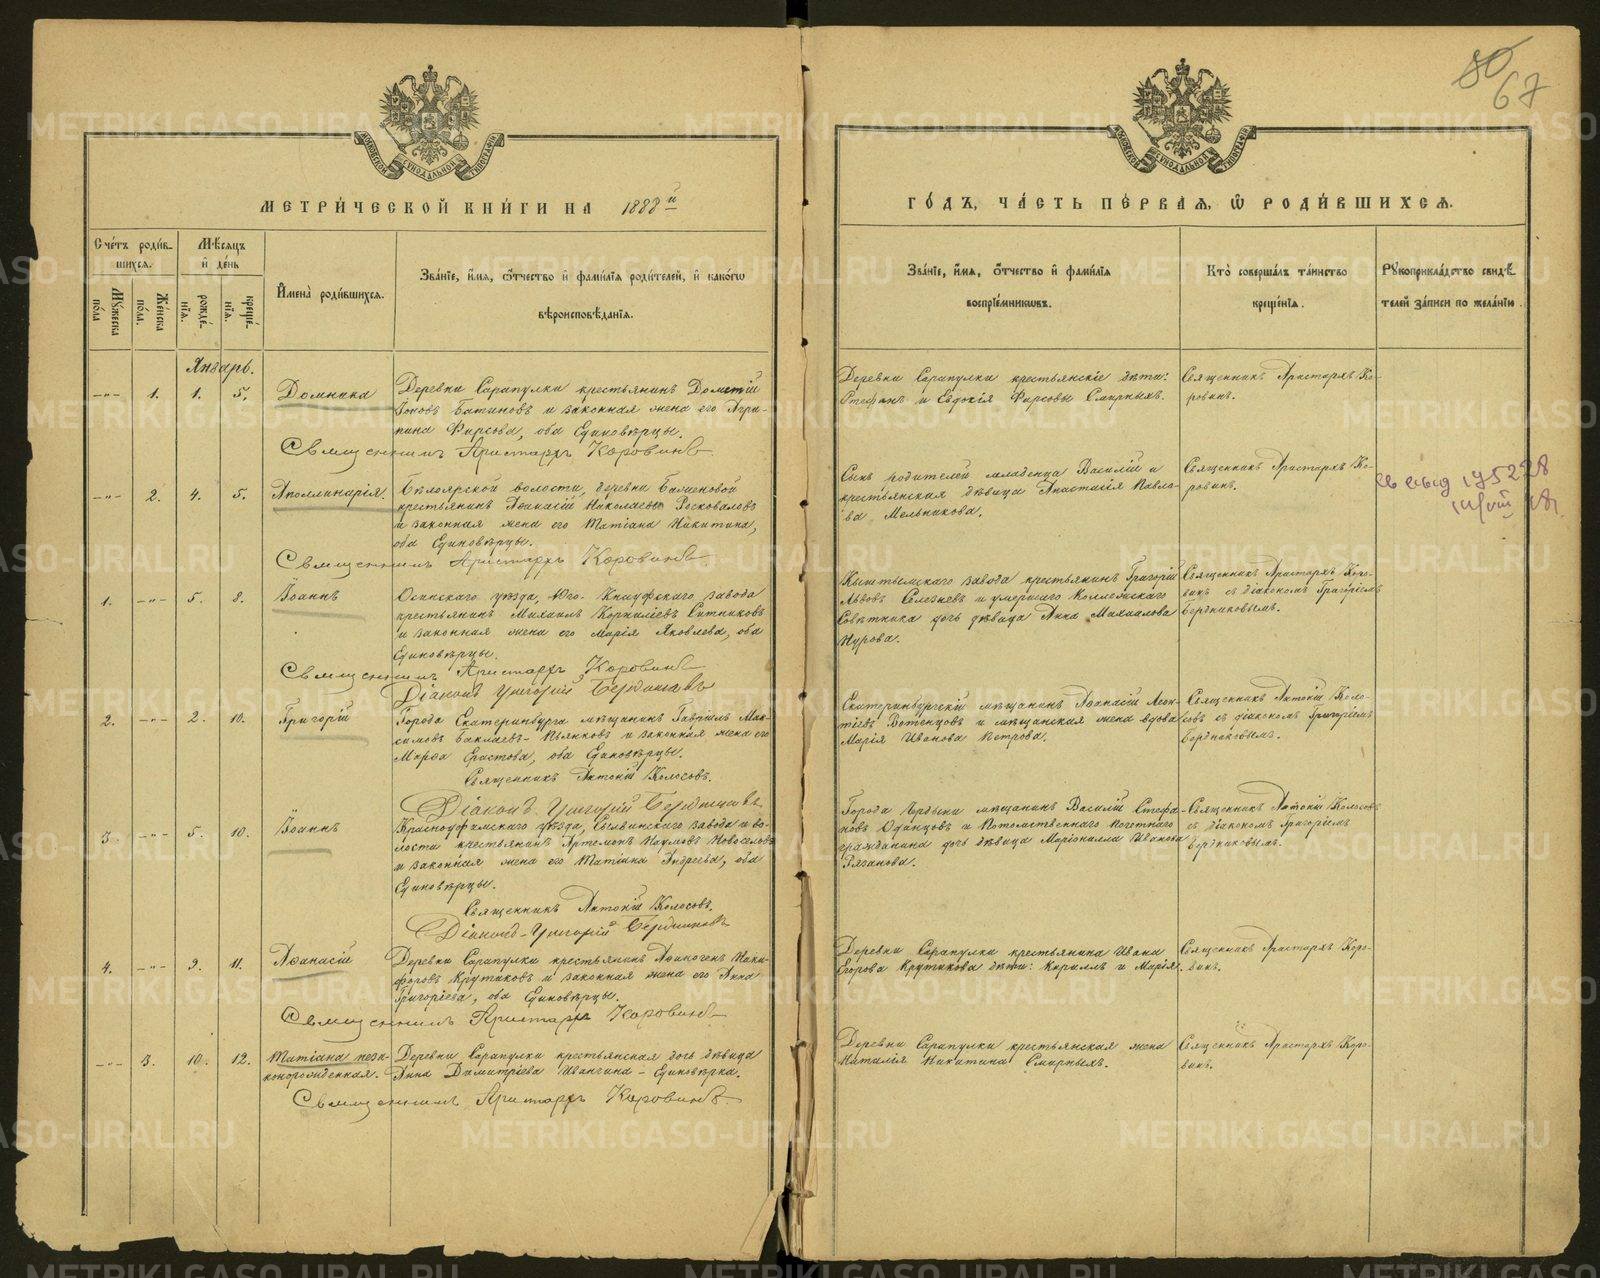 80
67
МЕТРИ́ЧЕСКОЙ КНИ́ГИ НА 1888й
ГО́ДЪ, ЧА́СТЬ ПЕ́РВАЯ, Ѡ РОДИ́ВШИХСЯ.
Сче́тъ роди́в-
шихся.
Му́жеска по́ла
Же́нска по́ла.
Мѣ́сяцъ и де́нь
рожде́-нія.
креще́-нія.
И҆мена̀ роди́вшихся.
Зва́нїе, и҆́мя, ѻ҆́тчество и҆ фами́лїя роди́телей, и҆ како́гѡ
вѣроисповѣ́данїя.
Зва́нїе, и҆́мя, ѻ҆́тчество и҆ фами́лїя
воспрїе́мниковъ.
Кто̀ соверша́лъ та́инство
креще́нїя.
Рꙋкоприкла́дство свидѣ́-
телей за́писи по жела́нїю.
Январь.
-„- 1. 1. 5. Домника
Деревни Сарапулки крестьянинъ Дометій
Іоновъ Батиновъ и законная жена его Агри-
пина Фирсова, оба Единовѣрцы.
Священникъ Аристархъ Коровинъ
Деревни Сарапулки крестьянскіе дѣти:
Стефанъ и Евдокія Фирсовы Смирныхъ.
Священникъ Аристархъ Ко-
ровинъ.
-„- 2. 4. 5. Аполлинарія.
Бѣлоярской волости, деревни Баженовой
крестьянинъ Аѳанасій Николаевъ Росковаловъ
и законная жена его Татіана Никитина,
оба Единовѣрцы.
Священникъ Аристархъ Коровинъ
Сынъ родителей младенца Василій и
крестьянская дѣвица Анастасія Павло-
ва Мельникова.
Священникъ Аристархъ Ко-
ровинъ.
1. -„- 5. 8. Іоаннъ
Осинскаго уѣзда, Юго-Кнауфскаго завода
крестьянинъ Михаилъ Корниліевъ Ситниковъ
и законная жена его Марія Яковлева, оба
Единовѣрцы.
Священникъ Аристархъ Коровинъ
Діаконъ Григорій Бердниковъ
Кыштымскаго завода крестьянинъ Григорій
Львовъ Селезневъ и умершаго Коллежскаго
Совѣтника дочь дѣвица Анна Михаилова
Нурова.
Священникъ Аристархъ Коро-
винъ съ діакономъ Григоріемъ
Бердниковымъ.
2. -„- 2. 10. Григорій
Города Екатеринбурга мѣщанинъ Гавріилъ Мак-
симовъ Баклаевъ-Пьянковъ и законная жена его
Марѳа Ерастова, оба Единовѣрцы.
Священникъ Антоній Колосовъ.
Діаконъ Григорій Бердниковъ
Екатеринбургскій мѣщанинъ Аѳанасій Леон-
тіевъ Вотенцовъ и мѣщанская жена вдова
Марія Иванова Петрова.
Священникъ Антоній Коло-
совъ съ діакономъ Григоріемъ
Бердниковымъ.
3. -„- 5. 10. Іоаннъ
Красноуфимскаго уѣзда, Сылвинскаго завода и во-
лости крестьянинъ Артемонъ Наумовъ Новоселовъ
и законная жена его Татіана Андреева, оба
Единовѣрцы.
Священникъ Антоній Колосовъ.
Діаконъ Григорій Бердниковъ
Города мѣщанинъ Василій Стефа-
новъ Одинцовъ и Потомственнаго Почетнаго
гражданина дочь дѣвица Маріонилла Иванова
Рязанова.
Священникъ Антоній Колосовъ
съ діакономъ Григоріемъ
Бердниковымъ.
4. -„- 9. 11. Аѳанасій
Деревни Сарапулки крестьянинъ Аѳиногенъ Ники-
форовъ Крутиковъ и законная жена его Анна
Григоріева, оба Единовѣрцы.
Священникъ Аристархъ Коровинъ
Деревни Сарапулки крестьянина Ивана
Егорова Крутикова дѣти: Кириллъ и Марія.
Священникъ Аристархъ Коро-
винъ.
-„- 3. 10. 12. Татіана неза-
коннорожденная.
Деревни Сарапулки крестьянская дочь дѣвица
Анна Димитріева Ивангина - Единовѣрка.
Священникъ Аристархъ Коровинъ.
Деревни Сарапулки крестьянская жена
Наталія Никитина Смирныхъ.
Священникъ Аристархъ Коро-
винъ.
METRIKI.GASO-URAL.RU